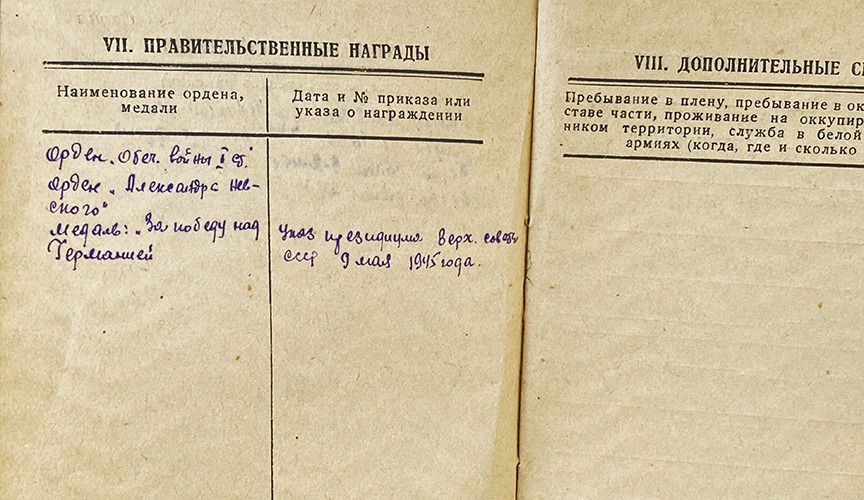 VII. ПРАВИТЕЛЬСТВЕННЫЕ НАГРАДЫ
Наименование ордена,
медали
Дата и № приказа или
указа о награждении
Орден „Отеч. войны I ст."
Орден „Александра Нев-
ского"
медаль: „За победу над
Германией
указ президиума Верх. совета
СССР 9 мая 1945 года.
VIII. ДОПОЛНИТЕЛЬНЫЕ С
Пребывание в плену, пребывание в ок
ставе части, проживание на оккупир
ником территории, служба в белой
армиях (когда, где и сколько